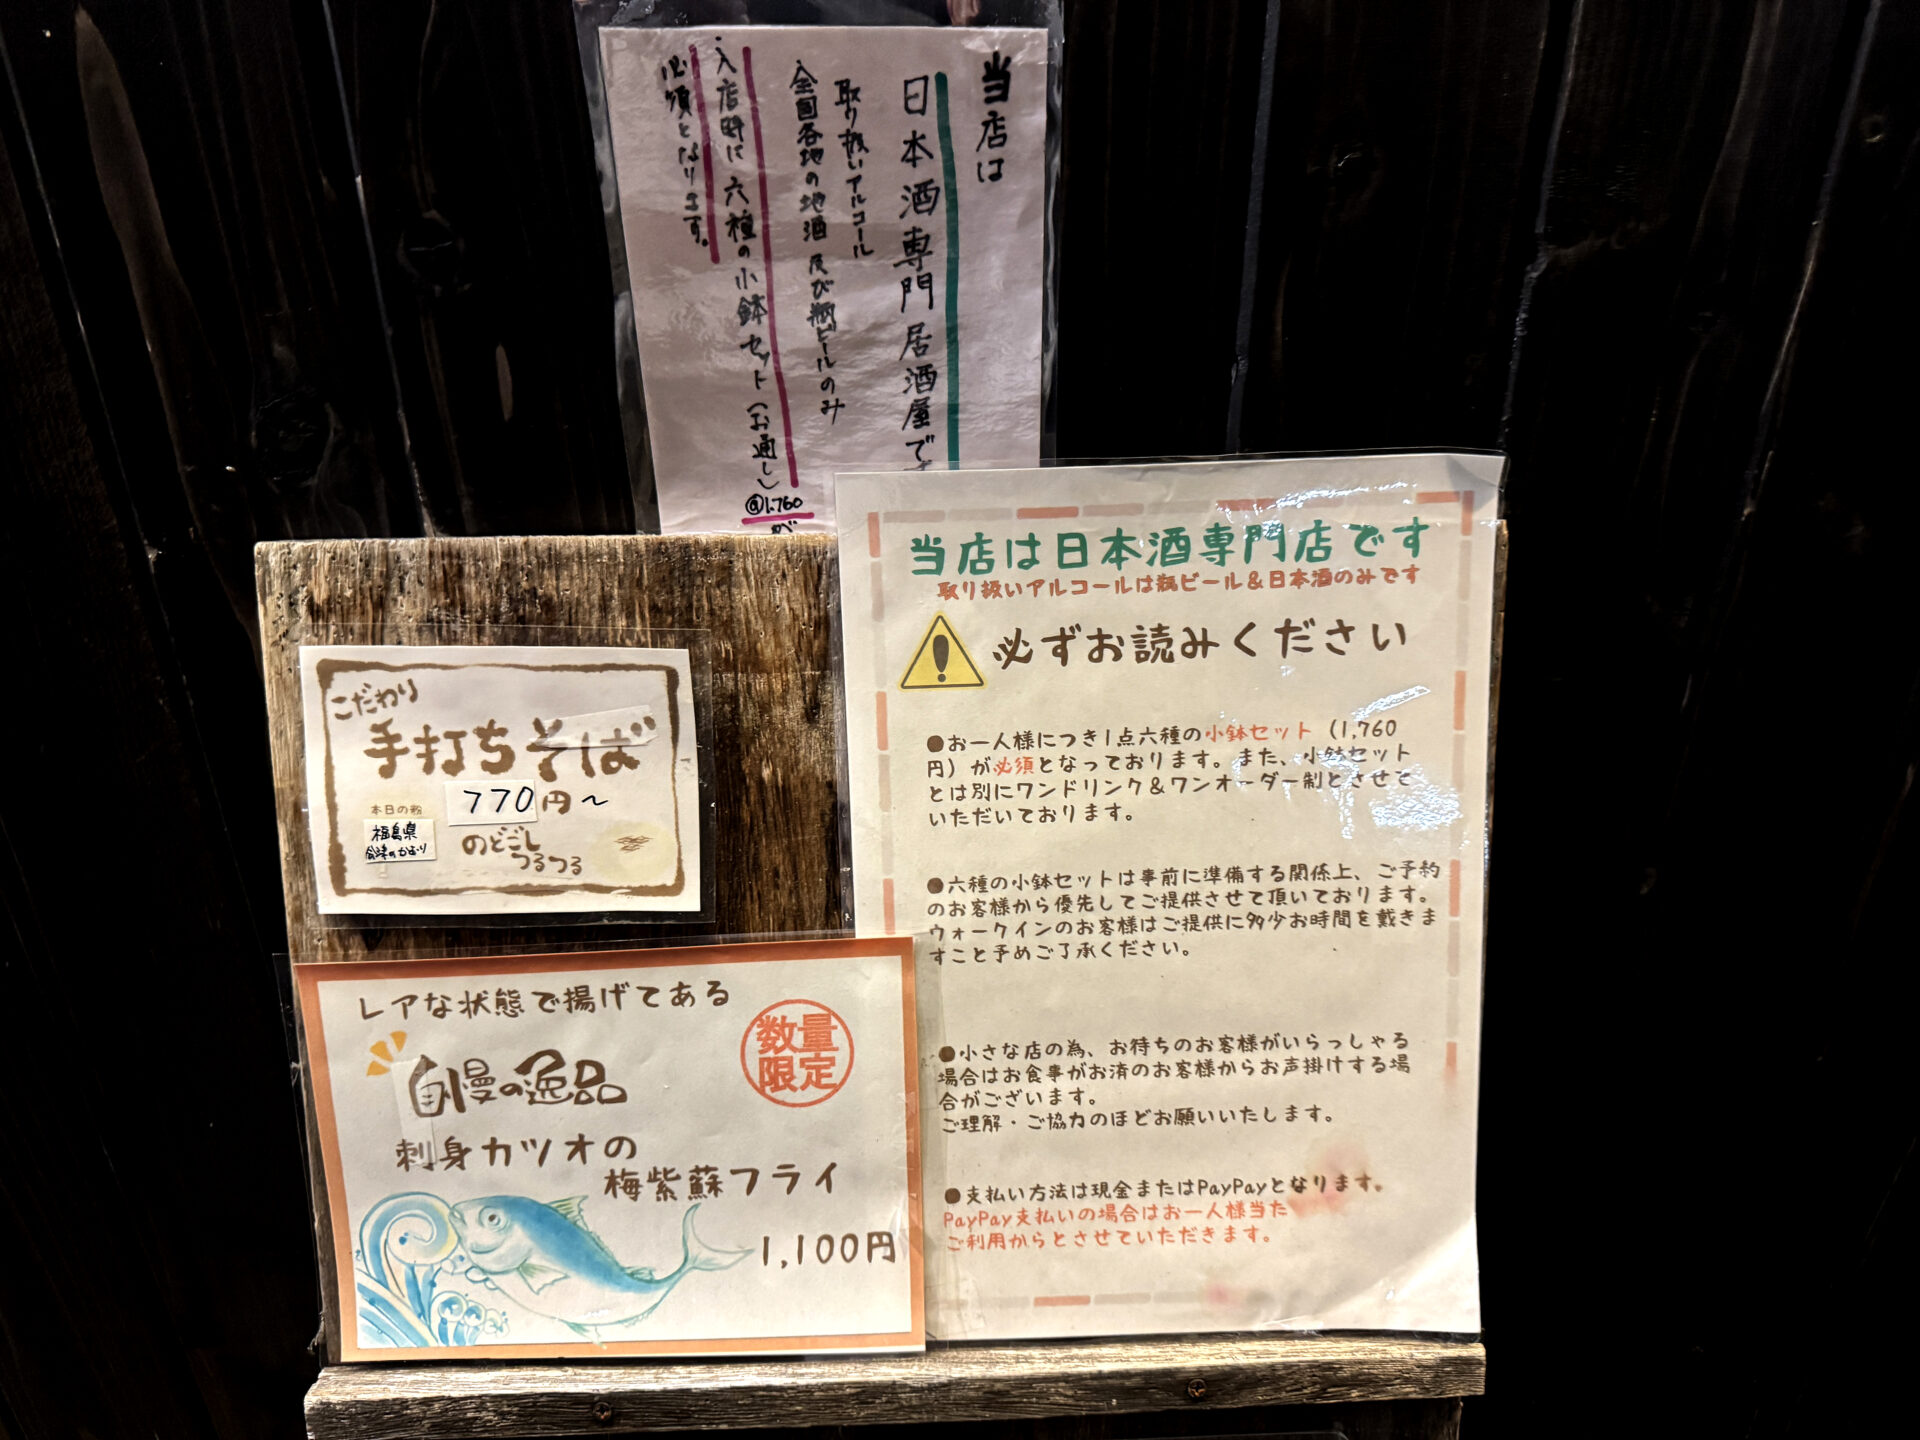 当店は
日本酒専門居酒屋で
取り扱いアルコール
全国各地の地酒及び瓶ビールのみ
入店時に六種の小鉢セット(お通し)@1,760が
必須となります。
当店は日本酒専門店です
取り扱いアルコールは瓶ビール&日本酒のみです
必ずお読みください
●お一人様につき1点六種の小鉢セット(1,760
円)が必須となっております。また、小鉢セット
とは別にワンドリンク&ワンオーダー制とさせて
いただいております。
●六種の小鉢セットは事前に準備する関係上、ご予約
のお客様から優先してご提供させて頂いております。
ウォークインのお客様はご提供に多少お時間を戴きま
すこと予めご了承ください。
●小さな店の為、お待ちのお客様がいらっしゃる
場合はお食事がお済のお客様からお声掛けする場
合がございます。
ご理解・ご協力のほどお願いいたします。
●支払い方法は現金またはPayPayとなります。
PayPay支払いの場合はお一人様当た
ご利用からとさせていただきます。
こだわり
手打ちそば
770円~
本日の粉
福島県
会津のかおり
のどごし
つるつる
レアな状態で揚げてある
数量
限定
自慢の逸品
刺身カツオの
梅紫蘇フライ
1,100円